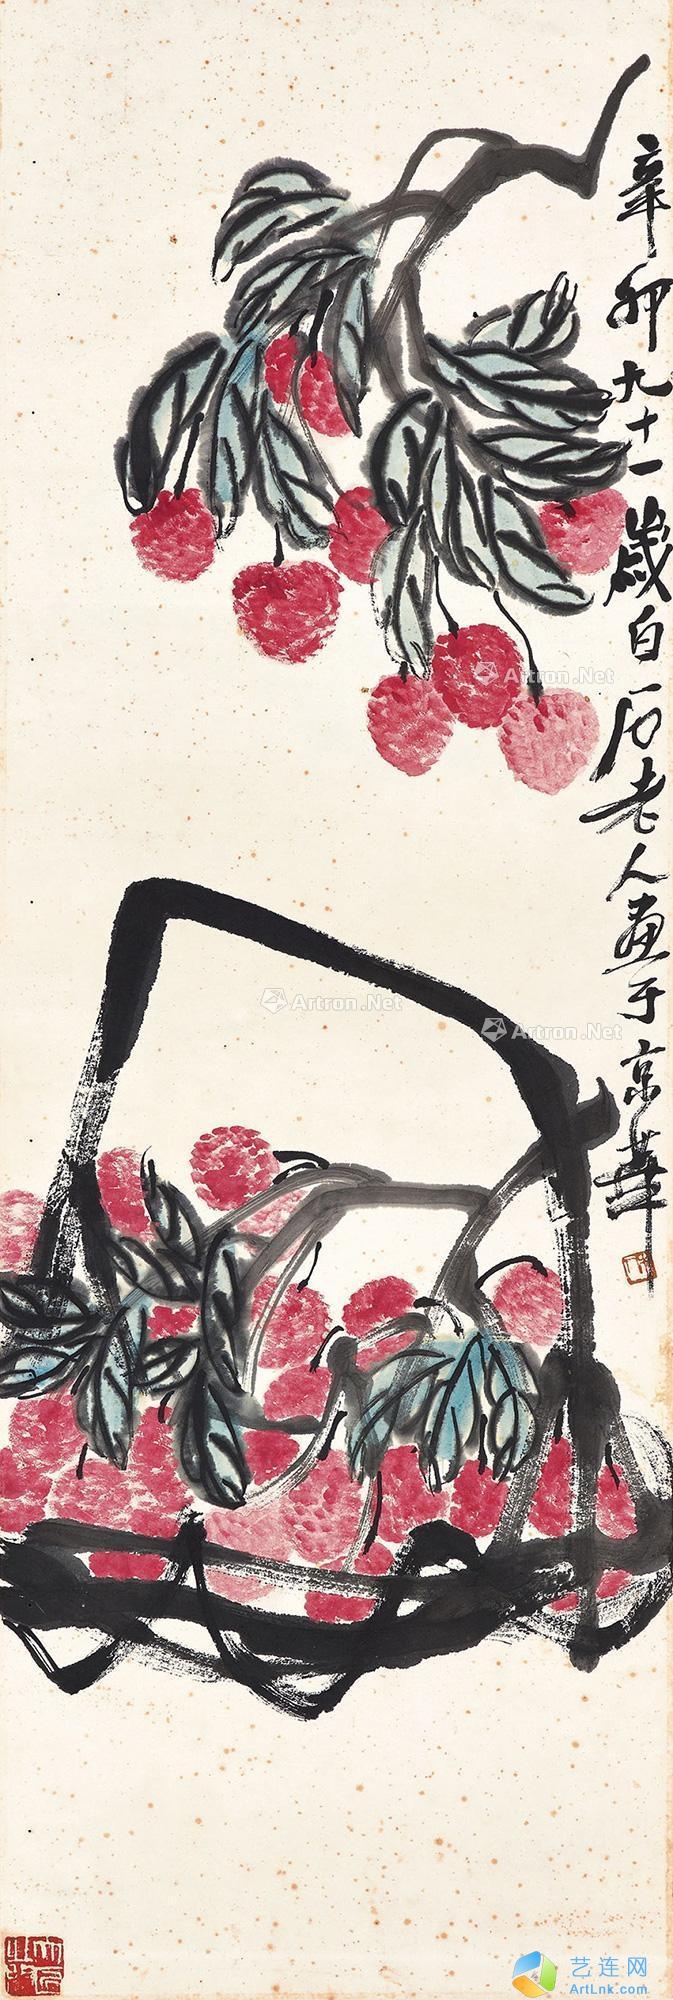 辛卯九十一歲白石老人畫于京華
Artron.Net
Artron.Net
Artron.Net
艺连网
ArtLnk.com